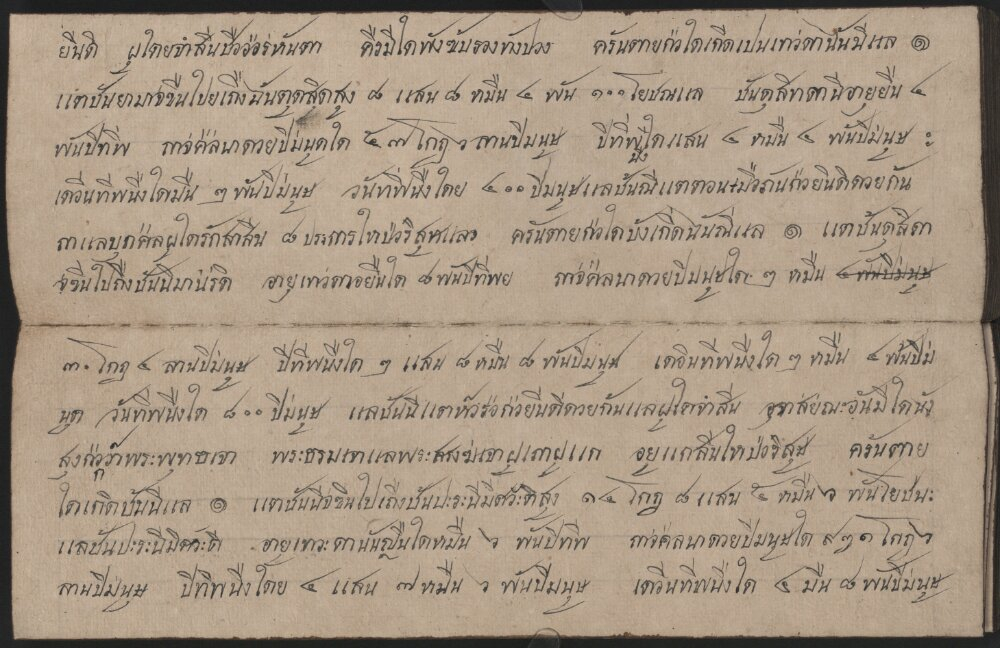 ยีนดิ ผูใดยจำสีนปืออ่อรหันตา คืงมีใดฟังขับรองทังปวง ครันตายก่วใดเกีดเปนเทว่ดานันนีแล ๑
แตชันยามาจีขืนไปยเถิงฉันดุดสิดสูง ๘ แสน ๘ หมืน ๔ พัน ๑๐๐ โยชณแล ชันดุสิทดานีอายุยืน ๔
พันปีทิพ กาจ่คีลนาดวยปีม่นุดใด ๕๗ โกฏ ๖ ลานปีมนุษ ปีทิพนืงใด แสน ๔ หมืน ๔ พันปีม่นุษ ะ
เดวีนทีพนืงใดหมืน ๆ พันปีม่นุษ วันทีพนืงใดย ๔๐๐ ปีมนุษแลชันณีแตตอนเมืวกันก่วยินดิดวยกัน
กาแลบุกค่ลผูใดรักสาสีน ๘ ประการใหป่วริสุทแลว ครันตายก่วใดบังเกีดนันณีแล ๑ แตชันดุสิดา
จ่ขืนไปเถืงชันนิมานํรดิ อายุเทว่ดาอยืนใด ๘ พันปีทิพย กาจ่คีลนาดวยปีมนุษใด ๆ หมืน ๔ พันปีม่นุษ
๓๐ โกฏ ๔ ลานปีม่นุษ ปีทีพนืงใด ๆ แสน ๘ หมืน ๘ พันปีมนุษ เดอินทีพนืงใด ๆ หมืน ๔ พันปีม่
นุด วันทีพนืงใด ๘๐๐ ปีม่นุษ แลชันนีแตหัวร่อก่วยีนดีดวยกันแลผูใดจำสีน อุาสยณะอันมีใดนัง
สูงก่วาพระพุทธเจา พระธรมเทาแลพระสงฆเจาผูเถาผูแก อยูแกสีนใหป่วริสุษ ครันตาย
ใดเกีดชันนีแล ๑ แตชันนีจ่ขืนไปเถีงชันปะระนีมีดวัะดิสูง ๑๔ โกฏ ๘ แสน ๕ หมืน ๖ พันโยชนะ
แลชันปะระนีมิดวะดี อายุเทวะดานันญืนใดหมืน ๖ พันปีทีพ กาจ่คีลนาดวยปีมนุษใด ๙๒๑ โกฏ ๖
ลานปีม่นุษ ปีทีพนืงใดย ๔ แสน ๗ หมืน ๖ พันปีมนุษ เดวีนทีพนีงใด ๔ มืน ๘ พันปีม่นุษ